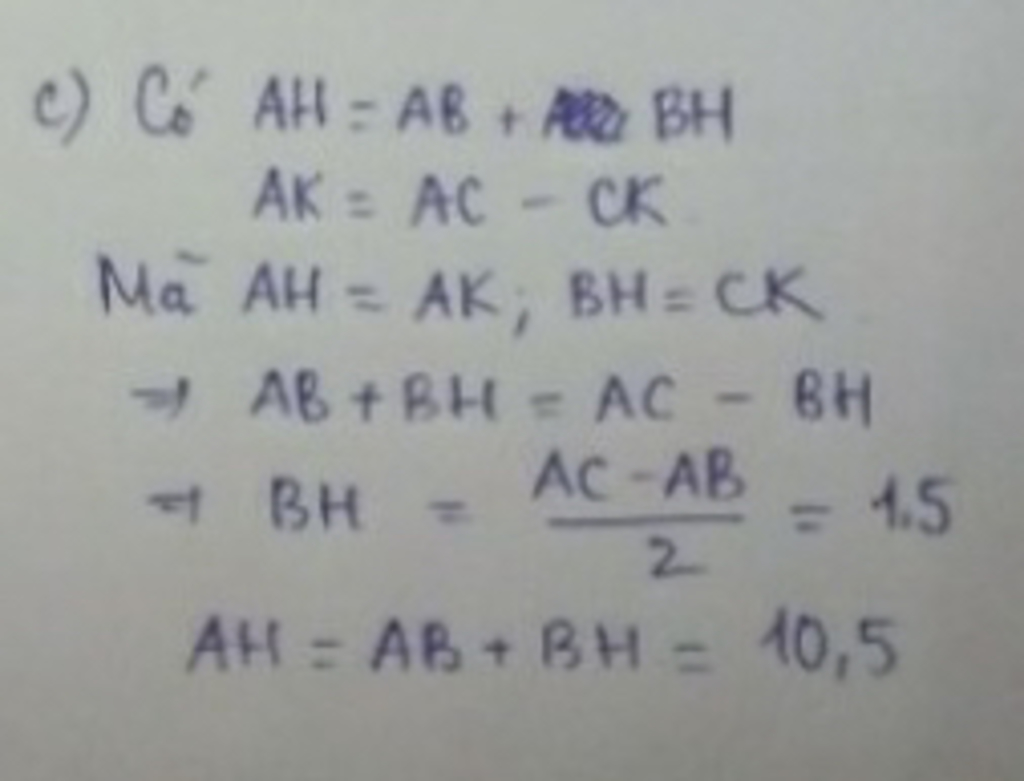 c) Có AH = AB + BH
AK = AC - CK
Mà AH = AK; BH = CK
⇒ AB + BH = AC - BH
⇒ BH = \frac{AC - AB}{2} = 1.5
AH = AB + BH = 10,5